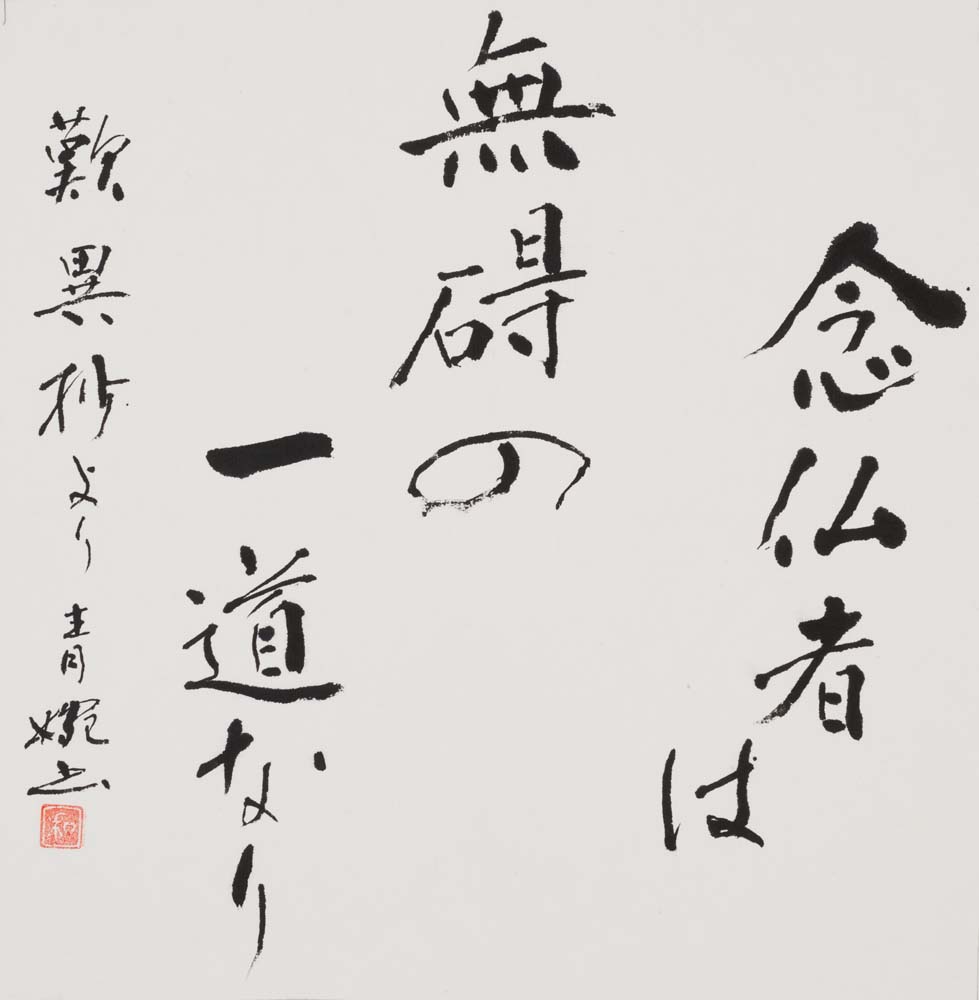 念仏者は
無碍の
一道なり
歎異抄より 青婉書
和